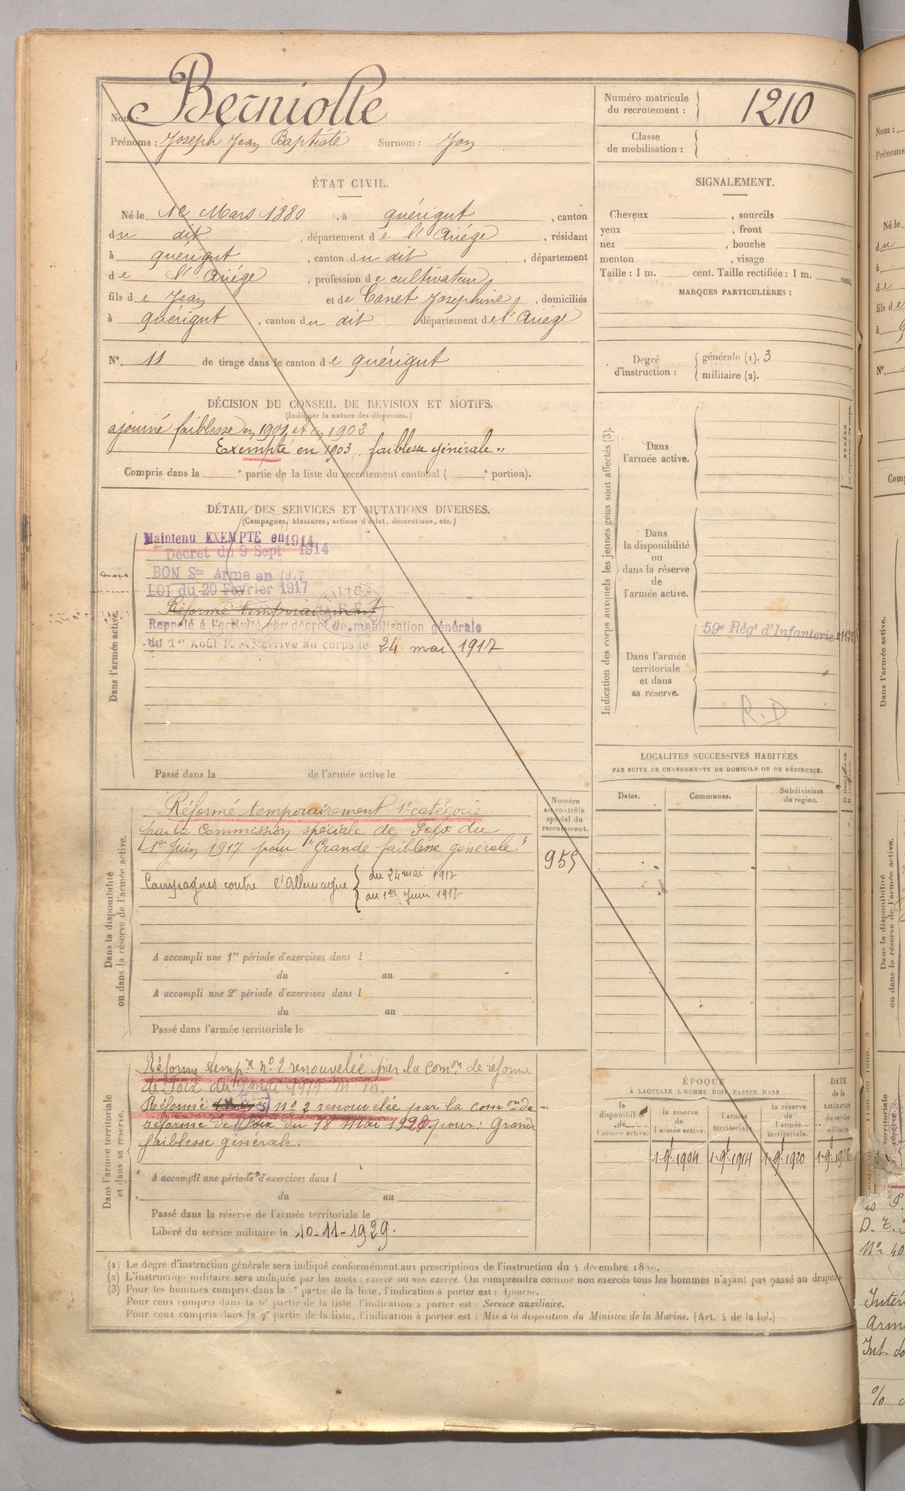 Nom : Berniolle
Prénoms : Joseph Jean Baptiste Surnom : Jon
Numéro matricule du recrutement : 1210
Classe de mobilisation :
ÉTAT CIVIL.
Né le 12 Mars 1880, à quérigut, canton
du dit, département de l'Ariége, résidant
à quérigut, canton du dit, département
de l'Ariége, profession de cultivateur
fils de Jean et de Canet Josephine, domiciliés
à quérigut, canton du dit département de l'Ariége
N° 11 de tirage dans le canton de quérigut
SIGNALEMENT.
Cheveux , sourcils
yeux , front
nez , bouche
menton , visage
Taille : 1 m. cent. Taille rectifiée : 1 m. cent.
MARQUES PARTICULIÈRES :
Degré d'instruction : générale (1). 3
militaire (2).
DÉCISION DU CONSEIL DE REVISION ET MOTIFS.
(Indiquer la nature des dispenses.)
ajourné faiblesse en 1901 et en 1902
Exempté en 1903. faiblesse générale "
Compris dans la e partie de la liste du recrutement cantonal ( e portion).
DÉTAIL DES SERVICES ET MUTATIONS DIVERSES.
(Campagnes, blessures, actions d'éclat, décorations, etc.)
Dans l'armée active.
Maintenu EXEMPTE en 1914
Décret du 9 Sept 1914
BON Sce Armé en 1917
LOI du 20 Février 1917
Réformé temporairement
Rappelé à l'activité par décret de mobilisation générale
du 1er Août Arrivé au corps le 24 mai 1917
Passé dans la de l'armée active le
Indication des corps auxquels les jeunes gens sont affectés (3).
Dans l'armée active.
Dans la disponibilité ou dans la réserve de l'armée active.
Dans l'armée territoriale et dans sa réserve.
59e Régt d'Infanterie
R.D
LOCALITÉS SUCCESSIVES HABITÉES
PAR SUITE DE CHANGEMENTS DE DOMICILE OU DE RÉSIDENCE.
Dates. Communes. Subdivisions de région.
Dans la disponibilité ou dans la réserve de l'armée active.
Réformé temporairement 1e catégorie
par la Commission spéciale de Foix du
1er Juin 1917 pour "Grande faiblesse générale."
Campagnes contre l'Allemagne du 24 mai 1917
au 1er Juin 1917
Numéro au contrôle spécial du recrutement.
955
A accompli une 1re période d'exercices dans l
du au
A accompli une 2e période d'exercices dans l
du au
Passé dans l'armée territoriale le
Dans l'armée territoriale et dans sa réserve.
Réforme tempre n° 2 renouvelée par la Comon de réforme
de Foix du
Réformé n° 2 renouvelée par la comon de
réforme de Foix du 18 Mai 1920 pour : Grande
faiblesse générale.
A accompli une période d'exercices dans l
du au
Passé dans la réserve de l'armée territoriale le
Libéré du service militaire le 10-11-1929.
ÉPOQUE
À LAQUELLE L'HOMME DOIT PASSER DANS
la disponibilité de l'armée active.
la réserve de l'armée active.
l'armée territoriale.
la réserve de l'armée territoriale.
DATE de la libération du service militaire.
1-9bre 1904 1-9bre 1914 1-9bre 1920
(1) Le degré d'instruction générale sera indiqué conformément aux prescriptions de l'instruction du 4 décembre
(2) L'instruction militaire sera indiquée par les mots : exercé ou non exercé. On comprendra comme non exercés tous les hommes n'ayant pas passé au drapeau
(3) Pour les hommes compris dans la partie de la liste, l'indication à porter est : Ajourné.
Pour ceux compris dans la 6e partie de la liste, l'indication à porter est : Service auxiliaire.
Pour ceux compris dans la partie de la liste, l'indication à porter est : Mis à la disposition du Ministre de la Marine. (Art. 4 de la loi.)